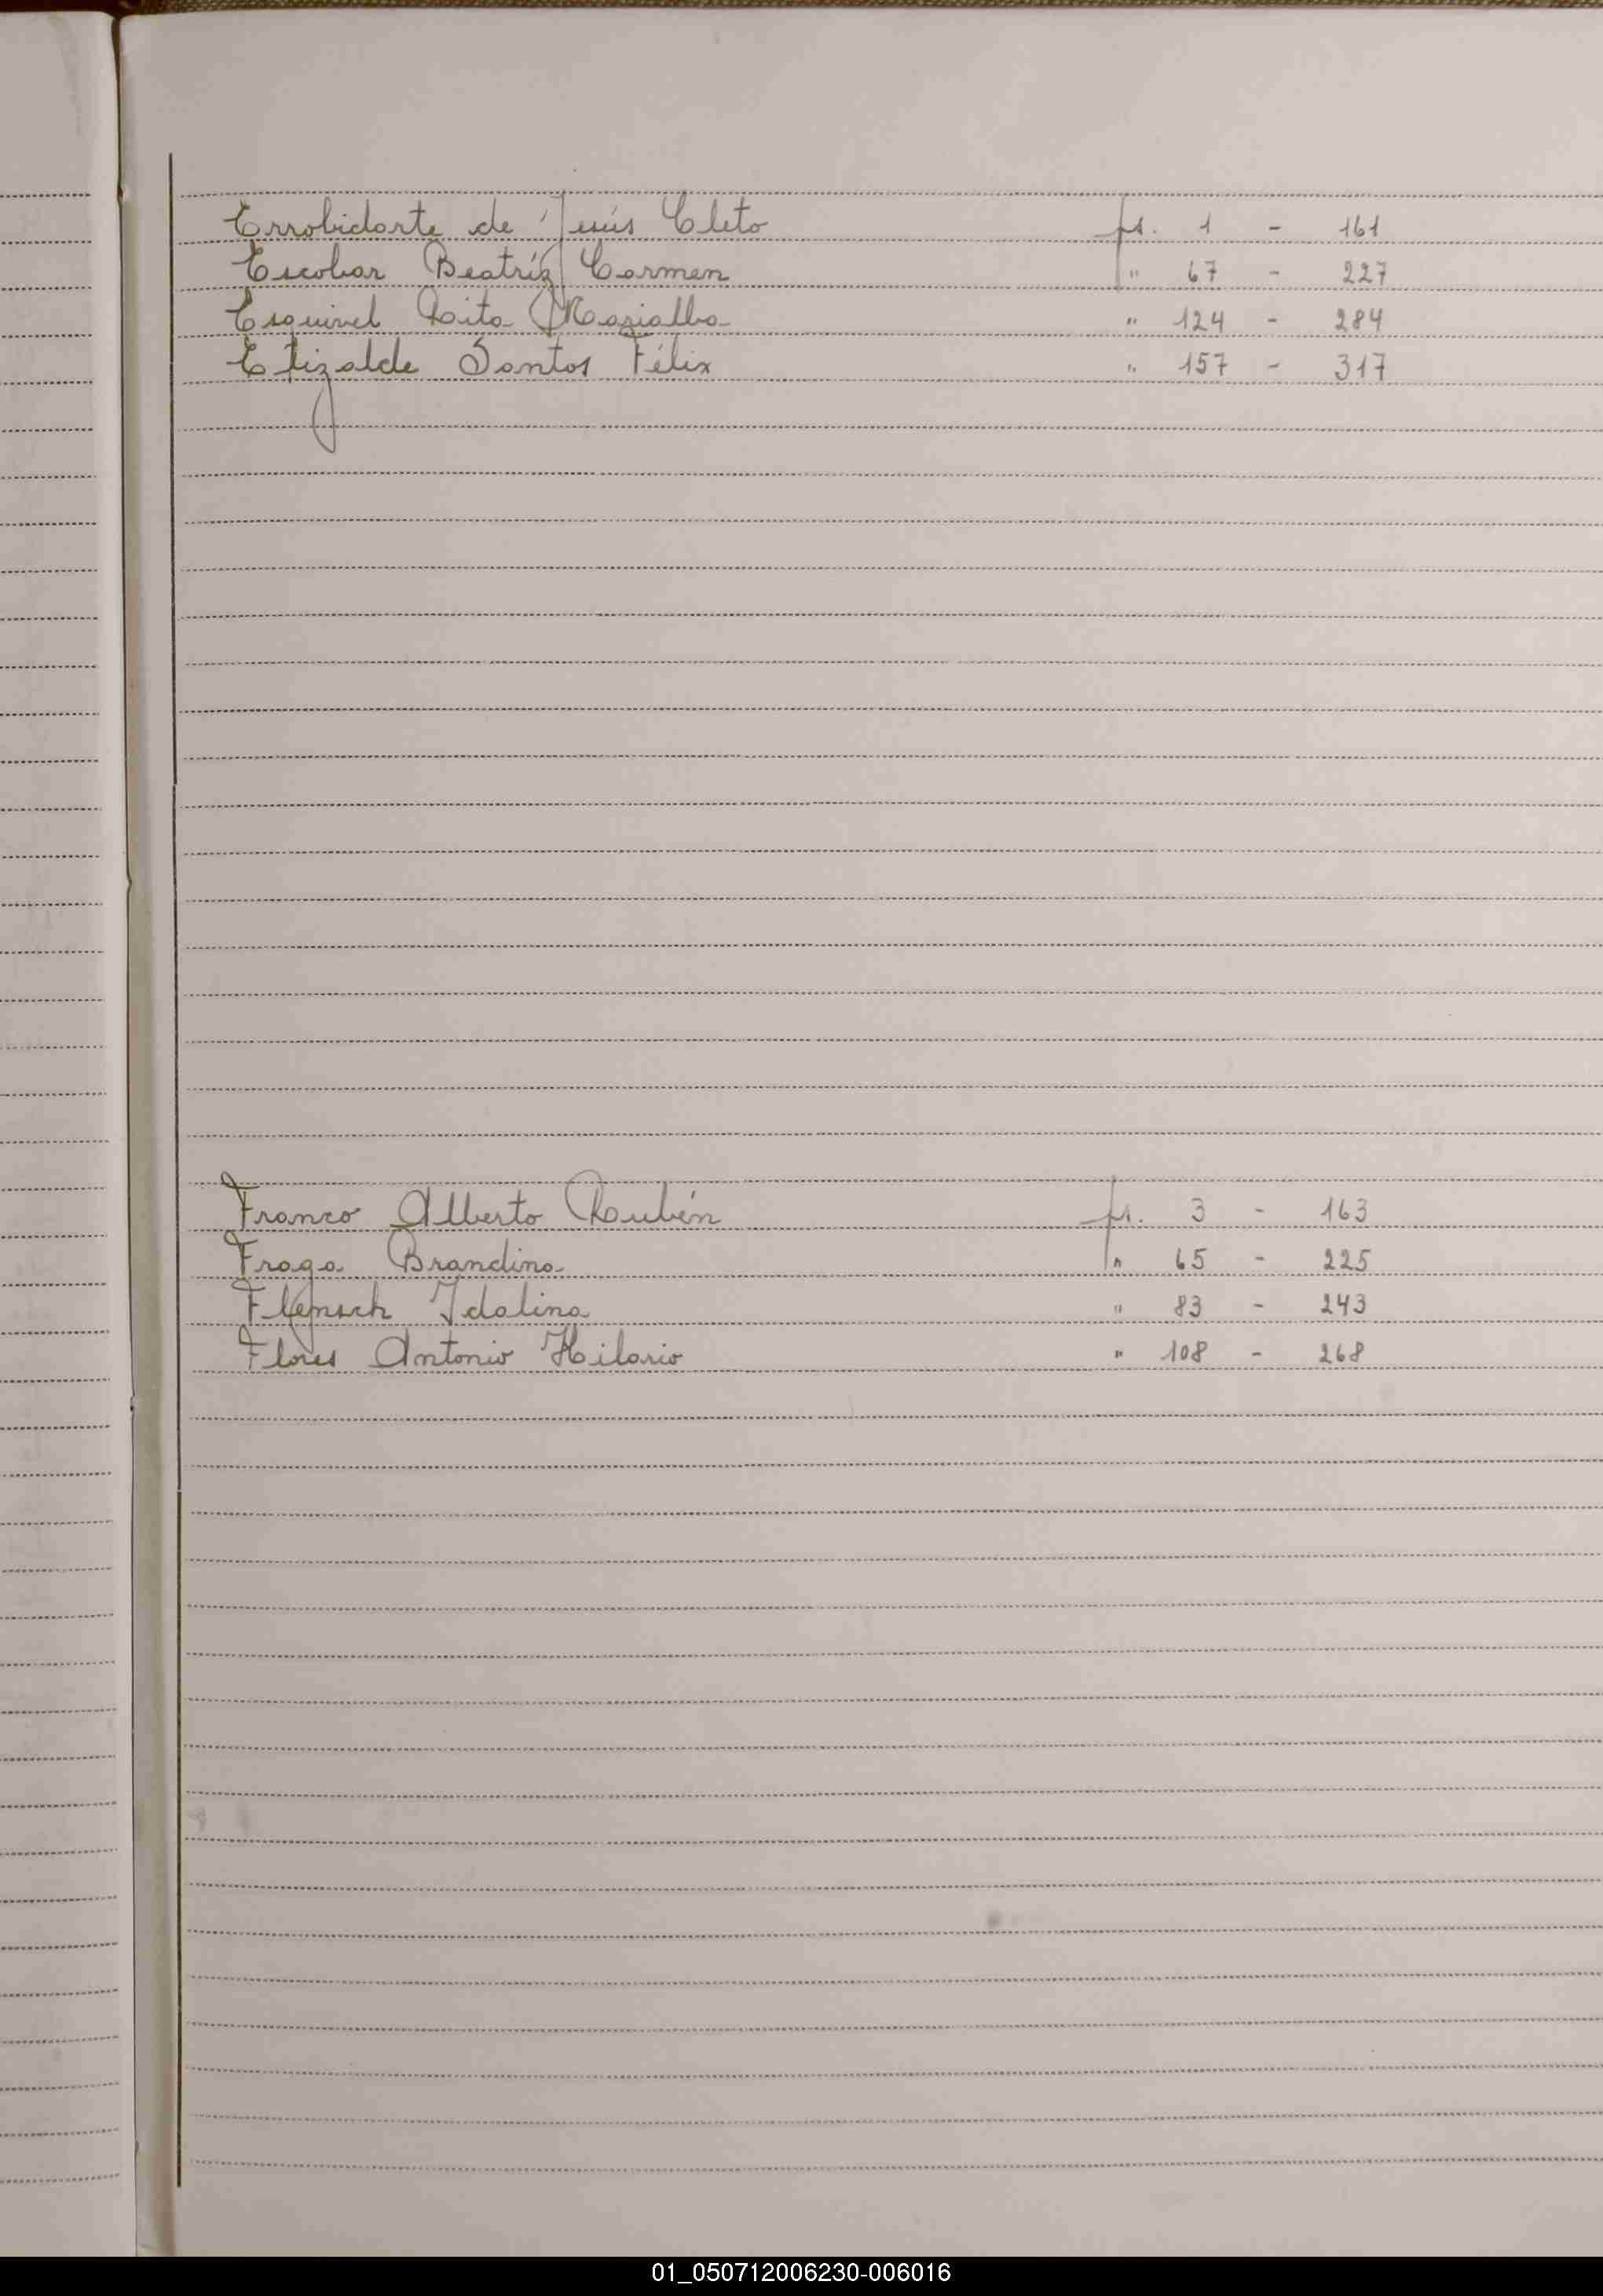 Errobidarte de Jesús Cleto fs. 1 - 161
Escobar Beatríz Carmen " 67 - 227
Esquivel Rita Marialba " 124 - 284
Elizalde Santos Félix " 157 - 317
Franco Alberto Rubén fs. 3 - 163
Fraga Brandina " 65 - 225
Idalina " 83 - 243
Flores Antonio Hilario " 108 - 268
01_050712006230-006016